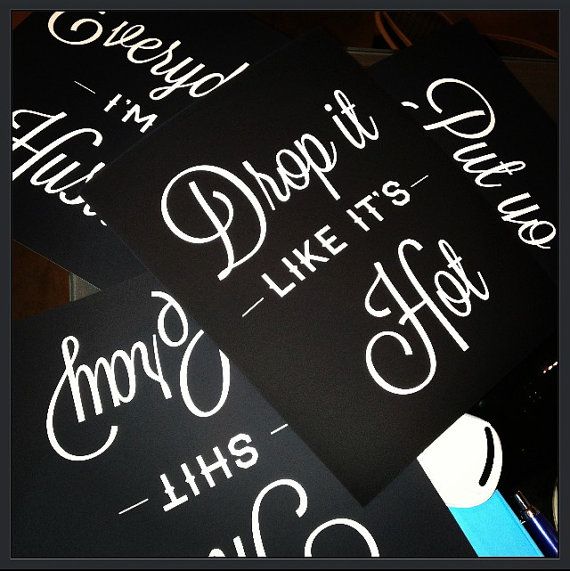 Everyd
I'M
Hus
Drop it
LIKE IT'S
Hot
Put yo
SHIT
Cray